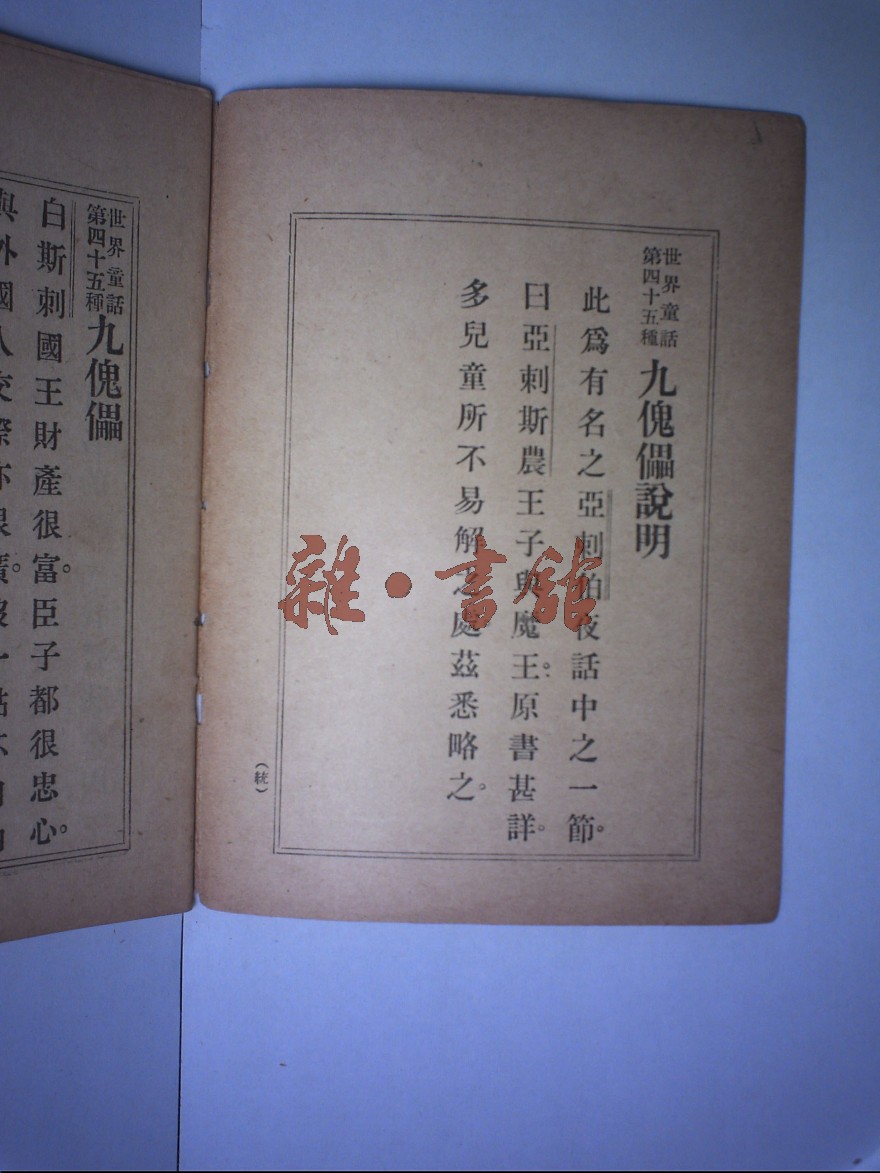 世界童話
第四十五種
九傀儡說明
此爲有名之亞刺伯夜話中之一節。
曰亞刺斯農王子與魔王。原書甚詳。
多兒童所不易解之處茲悉略之。
(統)
世界童話
第四十五種
九傀儡
白斯刺國王財產很富。臣子都很忠心。
與外國人交際亦很廣。
雜·書館